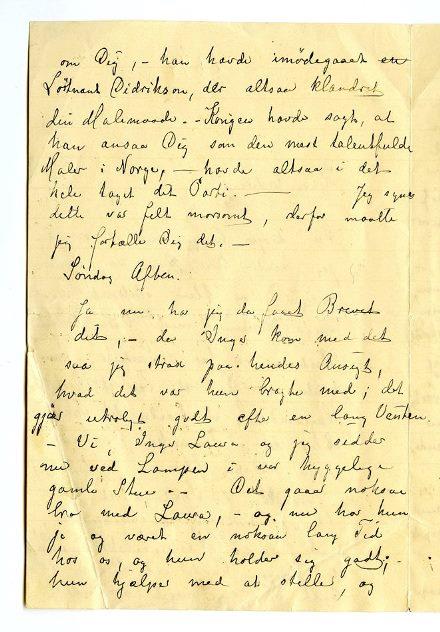 om Dig, – han havde imødegaaet en
Løitnant Didrikson, der altsaa klandret
din Malemaade. – Kongen havde sagt, at
han ansaa Dig som den mest talentfulde
Maler i Norge, – havde altsaa i det
hele taget dit Parti. — Jeg synes
dette var helt morsomt, derfor maatte
jeg fortælle Dig det. –
Søndag Aften.
Ja nu har jeg da faaet Brevet
dit, – da Inger kom med det
saa jeg strax paa hendes Ansigt,
hvad det var hun bragte med; det
gjør utroligt godt efter en lang Venten.
– Vi, Inger Laura og jeg sidder
nu ved Lampen i vor hyggelige
gamle Stue. – Det gaar noksaa
bra med Laura, – og nu har hun
jo og været en noksaa lang Tid
hos os, og hun holder sig godt; –
hun hjælper med at stelle, og